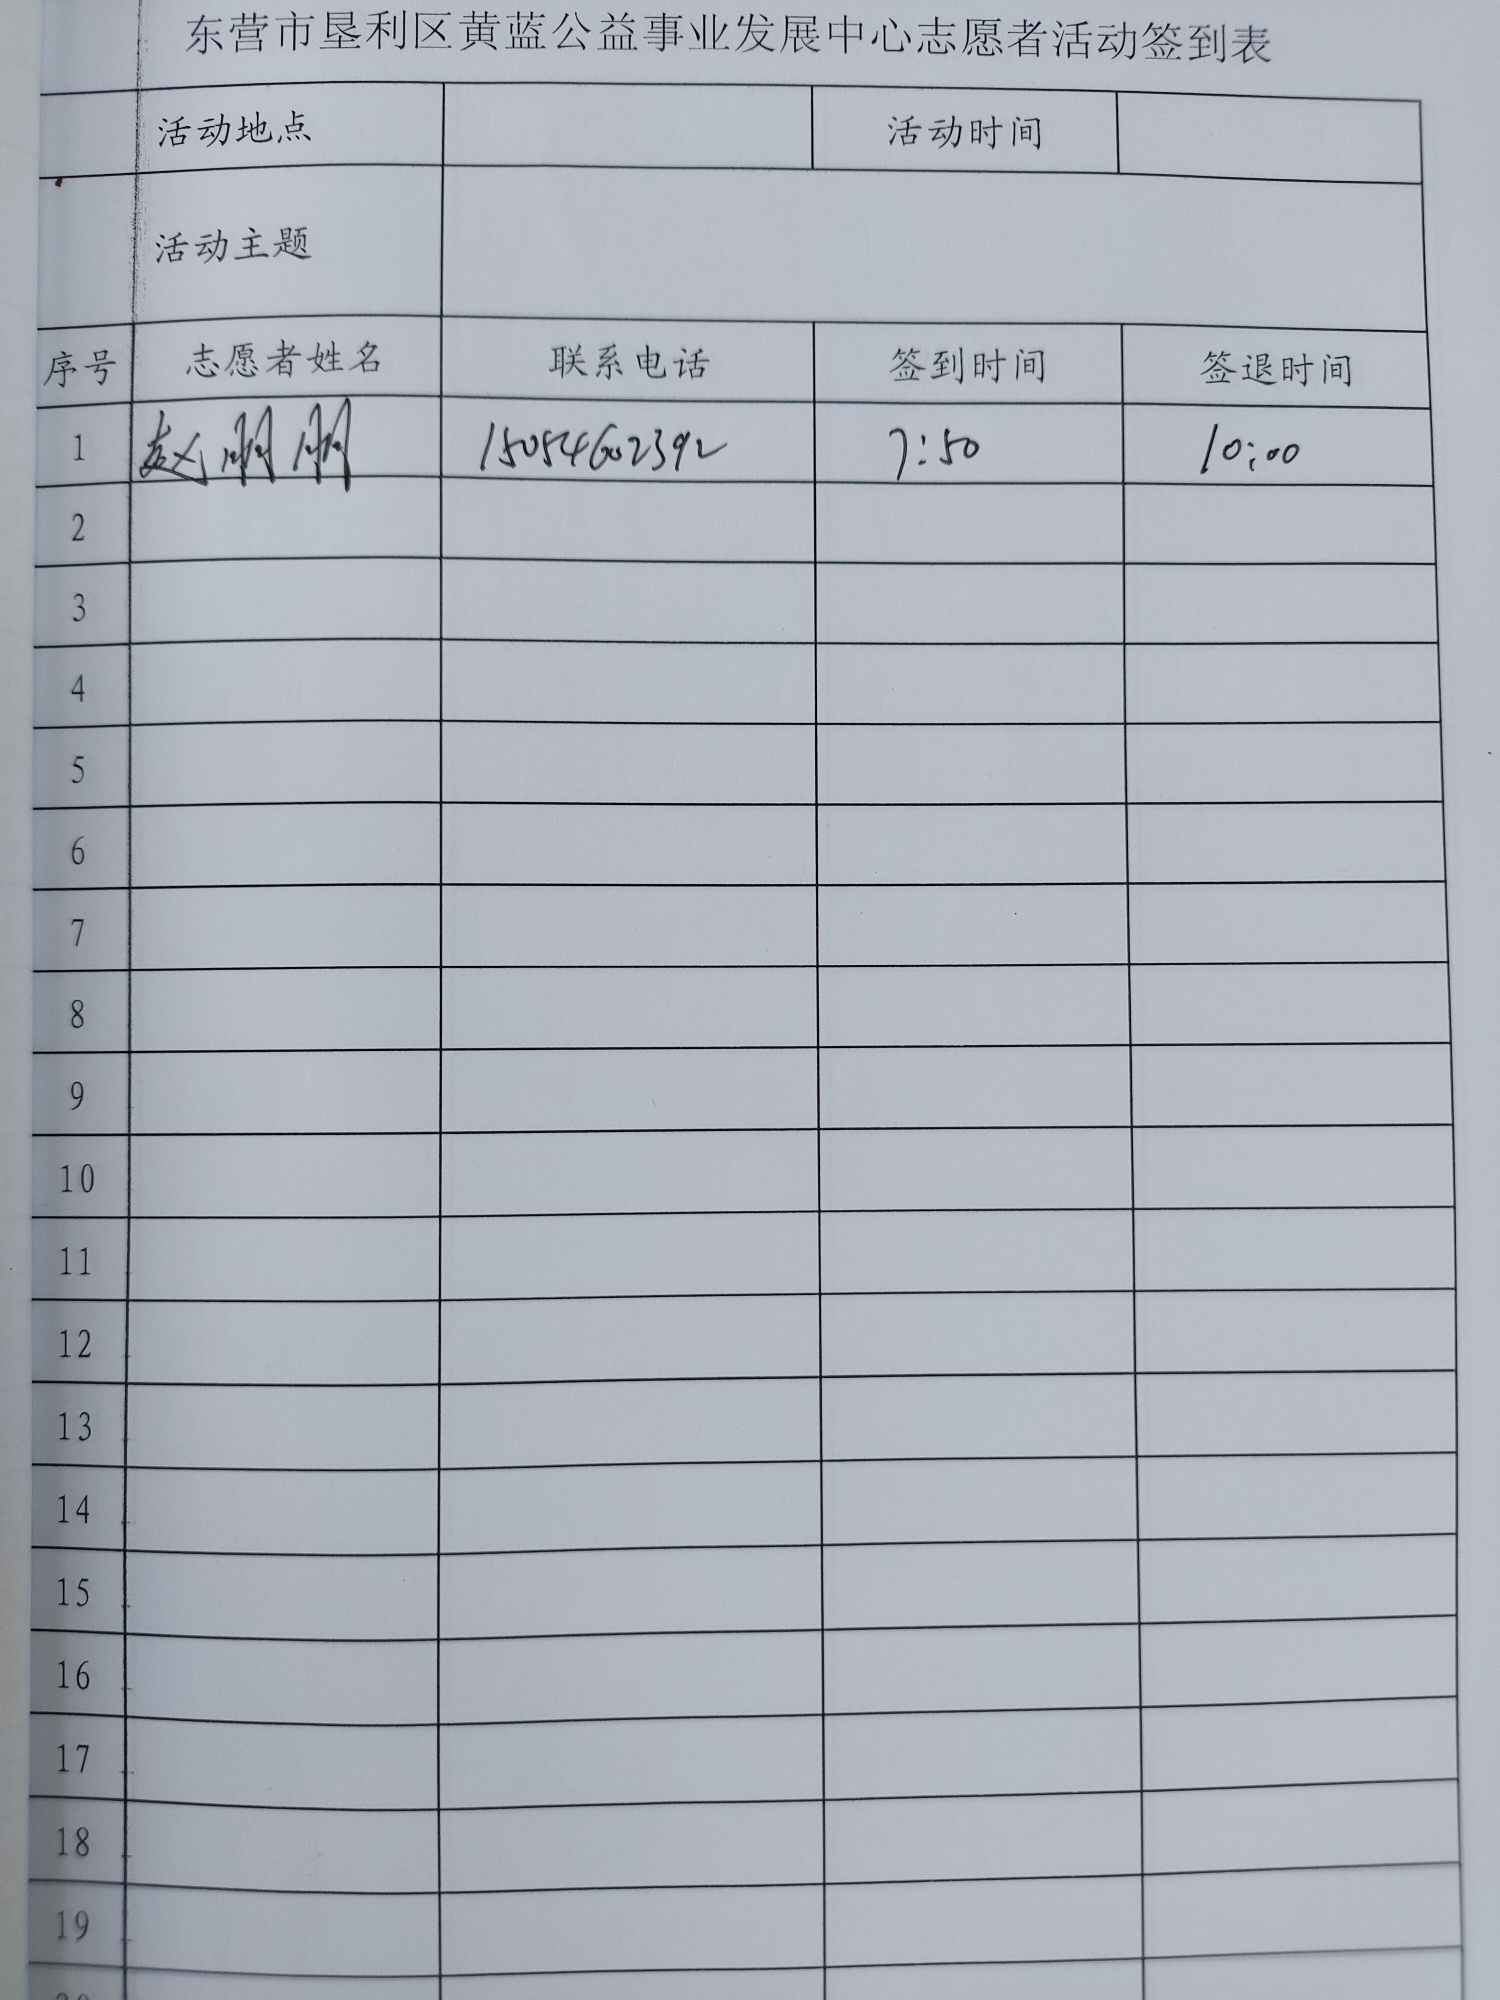 东营市垦利区黄蓝公益事业发展中心志愿者活动签到表
活动地点 活动时间
活动主题
序号 志愿者姓名 联系电话 签到时间 签退时间
1 赵明明 15054602392 7:50 10:00
2
3
4
5
6
7
8
9
10
11
12
13
14
15
16
17
18
19
20